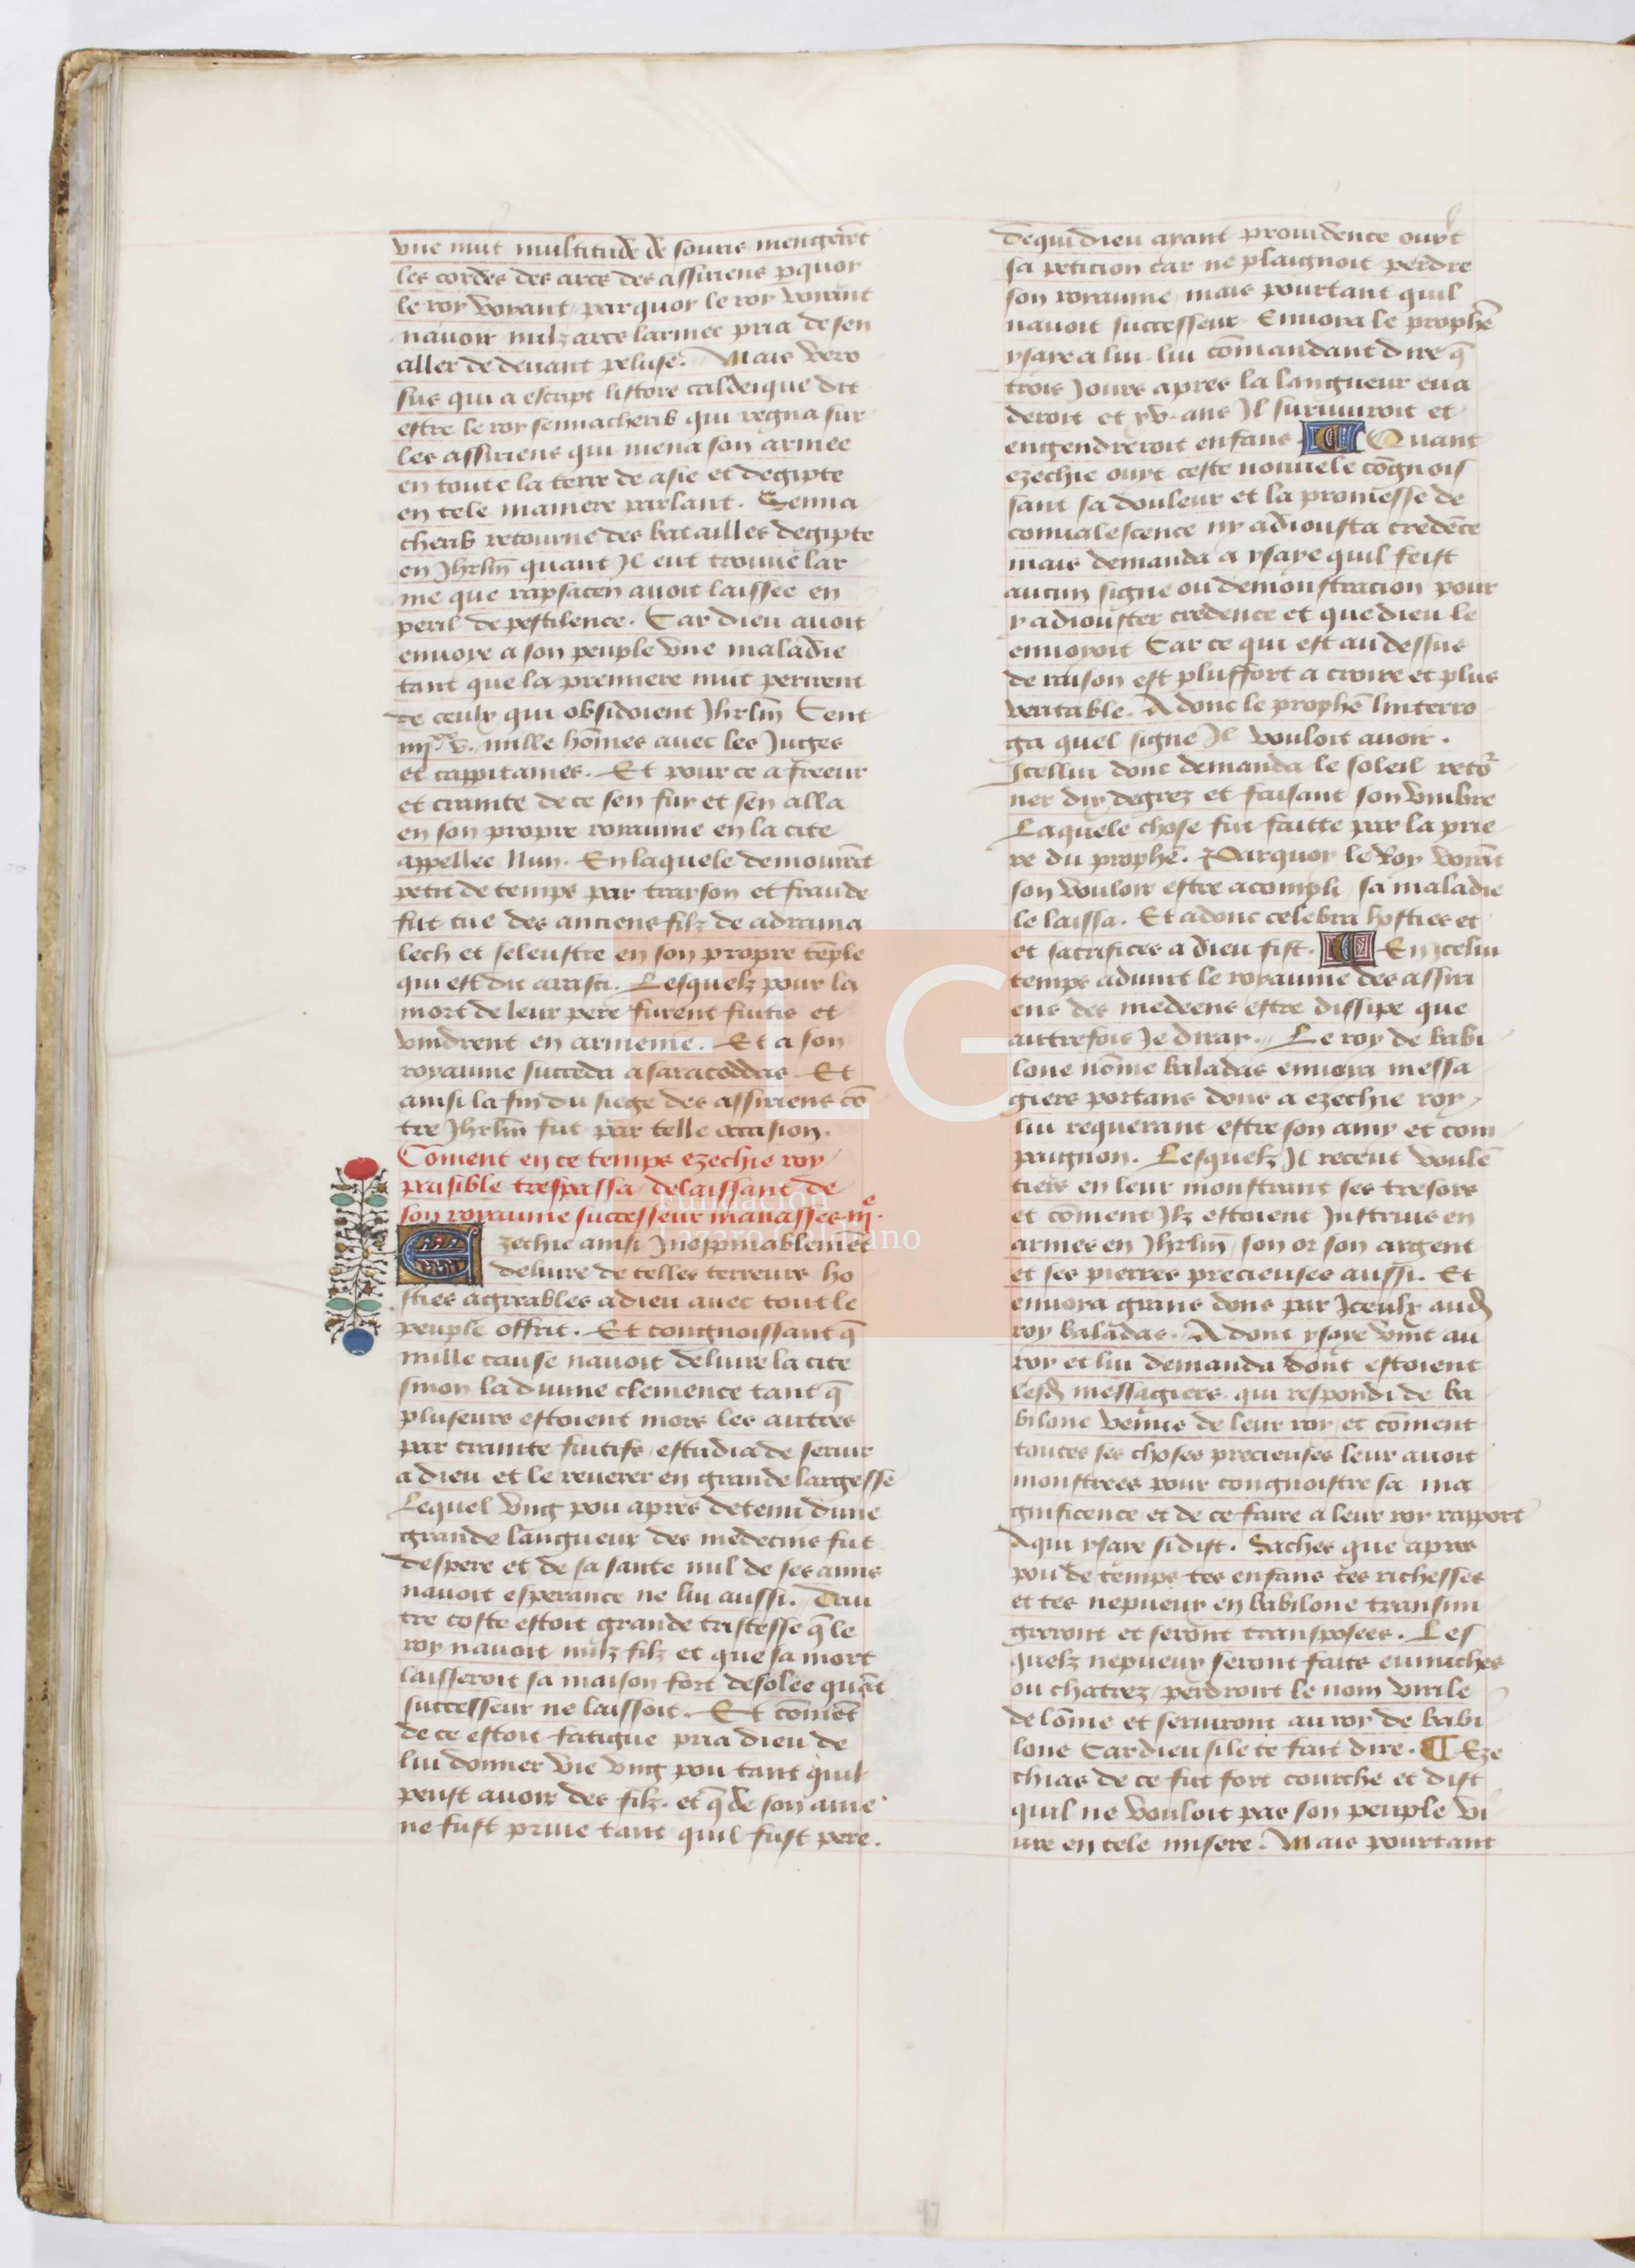 vne nuit multitude de souris mengerēt
les cordes des arcs des assiriens pquoy
le roy voyant / parquoy le roy voyant
nauoir nulz arcs larmee pria de sen
aller de deuant peluse. Mais bero
sus qui a escript listore caldeique dit
estre le roy sennacherib qui regna sur
les assiriens qui mena son armee
en toute la terre de asie et degipte
en tele maniere parlant. Senna
cherib retourne des batailles degipte
en Jhrlm̄ quant Jl eut trouue lar
me que rapsacen auoit laissee en
peril de pestilence. Car dieu auoit
enuoye a son peuple vne maladie
tant que la premiere nuit perirent
de ceulx qui obsidoient Jhrlm̄ Cent
iiijxx v. mille hōmes auec les Juges
et cappitaines. Et pour ce a freeur
et crainte de ce sen fuy et sen alla
en son propre royaume en la cite
appellee Nun. En laquele demourāt
petit de temps par trayson et fraude
fut tue des anciens filz de adrama
lech et seleustre en son propre tēple
qui est dit arasci. Lesquelz pour la
mort de leur pere furent fuitis et
vindrent en armenie. Et a son
royaume succeda asaracoddas Et
ainsi la fin du siege des assiriens cō
tre Jhrlm̄ fut par telle occasion.
Coment en ce temps ezechie roy
paisible trespassa / delaissant de
son royaume successeur manasses. iije.
Ezechie ainsi Jnoppinablemēt
deliure de telles terreurs ho
sties agreables a dieu auec tout le
peuple offrit. Et congnoissant q̄
nulle cause nauoit deliure la cite
sinon la diuine clemence tant q̄
pluseurs estoient mors les autres
par crainte fuitifs / estudia de seruir
a dieu et le reuerer en grande largesse
Lequel vng pou apres detenu dune
grande langueur des medecins fut
despere et de sa sante nul de ses amis
nauoit esperance ne lui aussi. Dau
tre coste estoit grande tristesse q̄ le
roy nauoit nulz filz et que sa mort
laisseroit sa maison fort desolee quāt
successeur ne laissoit. Et cōment
de ce estoit fatigue pria dieu de
lui donner vie vng pou tant quil
peust auoir des filz. et q̄ de son ame
ne fust priue tant quil fust pere.
De qui dieu ayant prouidence ouyt
sa peticion car ne plaignoit perdre
son royaume / mais pourtant quil
nauoit successeur. Enuoya le prophē
ysaye a lui. lui cōmandant dire q̄
trois Jours apres la langueur eua
deroit et xv. ans Jl suruiuroit et
engendreroit enfans. Quant
ezechie ouyt ceste nouuele cōgnois
sant sa douleur et la promesse de
conualescence ny adiousta credēce
mais demanda a ysaye quil feist
aucun signe ou demonstracion pour
y adiouster credence et que dieu le
enuoyoit Car ce qui est au dessus
de raison est pluffort a croire et plus
veritable. Adonc le prophē linterro
ga quel signe Jl vouloit auoir.
Jcellui donc demanda le soleil retor
ner dix degrez et faisant son vmbre
Laquele chose fut faitte par la prie
re du prophē. Parquoy le Roy voyāt
son vouloir estre acompli / sa maladie
le laissa. Et adonc celebra hosties et
et sacrifices a dieu fist. En Jcelui
temps aduint le royaume des assiri
ens des medeens estre dissipe que
autrefois Je diray. Le roy de babi
lone nōme baladas enuoya messa
giers portans dons a ezechie roy
lui requerant estre son amy et com
paignon. Lesquelz Jl receut voulē
tiers en leur monstrant ses tresors
et cōment Jlz estoient Jnstruis en
armes en Jhrlm̄ / son or son argent
et ses pierres precieuses aussi. Et
enuoya grans dons par Jceulx aud
roy baladas. Adonc ysaye vint au
roy et lui demanda dont estoient
lesd messagiers. qui respondi de ba
bilone venus de leur roy / et cōment
toutes ses choses precieuses leur auoit
monstrees pour congnoistre sa ma
gnificence / et de ce faire a leur roy rapport
A qui ysaye si dist. Saches que apres
pou de temps tes enfans tes richesses
et tes nepueux en babilone transmi
greront et seront transposees. Les
quelz nepueux seront fais eunuches
ou chatrez / perdront le nom virile
de lōme et seruiront au roy de babi
lone Car dieu si le te fait dire. Eze
chias de ce fut fort courche et dist
quil ne vouloit pas son peuple vi
ure en tele misere. Mais pourtant
FLG
Fundación
Lázaro Galdiano
97